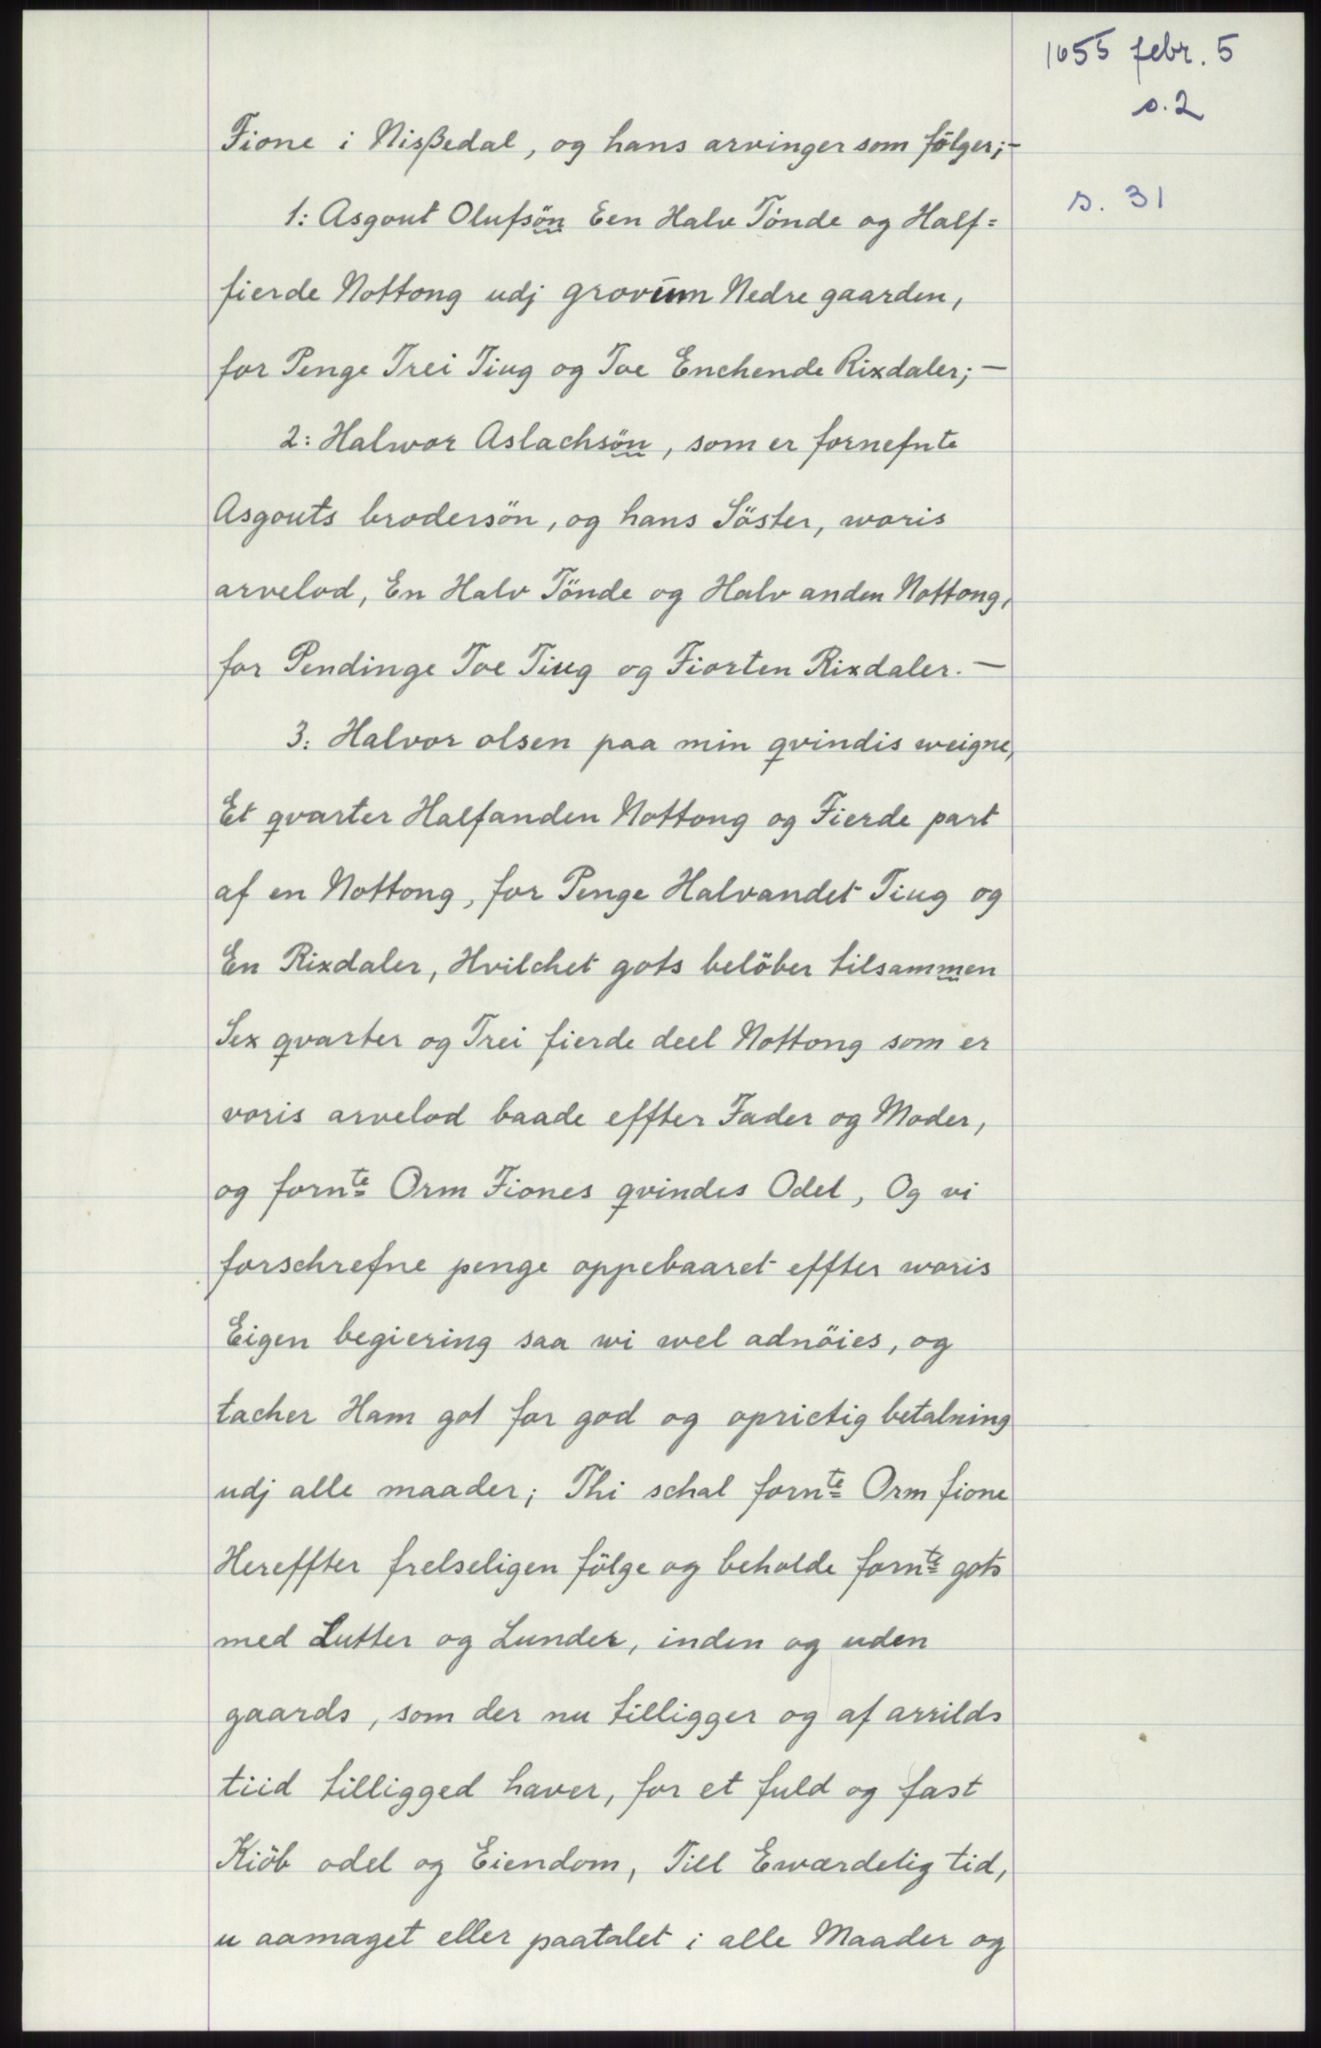 1655 febr. 5
s. 2
s. 31
Fione i Nisßedal, og hans arvinger som fölger;-
1: Asgout Olufsön Een Halv Tönde og Half=
fierde Nottong udj grovum Nedre gaarden,
for Penge Trei Tiug og Toe Enchende Rixdaler; —
2: Halwor Aslachsön, som er fornefnte
Asgouts brodersön, og hans Söster, woris
arvelod, En Halv Tönde og Halv anden Nottong,
for Pendinge Toe Tiug og Fiorten Rixdaler. —
3: Halvor olsen paa min qvindis weigne,
Et qvarter Halfanden Nottong og Fierde part
af en Nottong, for Penge Halvandet Tiug og
En Rixdaler, Hvilchet gots belöber tilsammen
Sex qvarter og Trei fierde deel Nottong som er
voris arvelod baade effter Fader og Moder,
og fornte Orm Fiones qvindes Odel, Og vi
forschrefne penge oppebaaret effter woris
Eigen begiering saa wi wel adnöies, og
tacher Ham got for god og oprictig betalning
udj alle maader; Thi schal fornte Orm fione
Hereffter frelseligen fölge og beholde fornte gots
med Lutter og Lunder, inden og uden
gaards, som der nu tilligger og af arrilds
tiid tilligged haver, for et fuld og fast
Kiöb odel og Eiendom, Till Ewærdelig tid,
u aamaget eller paatalet i alle Maader og